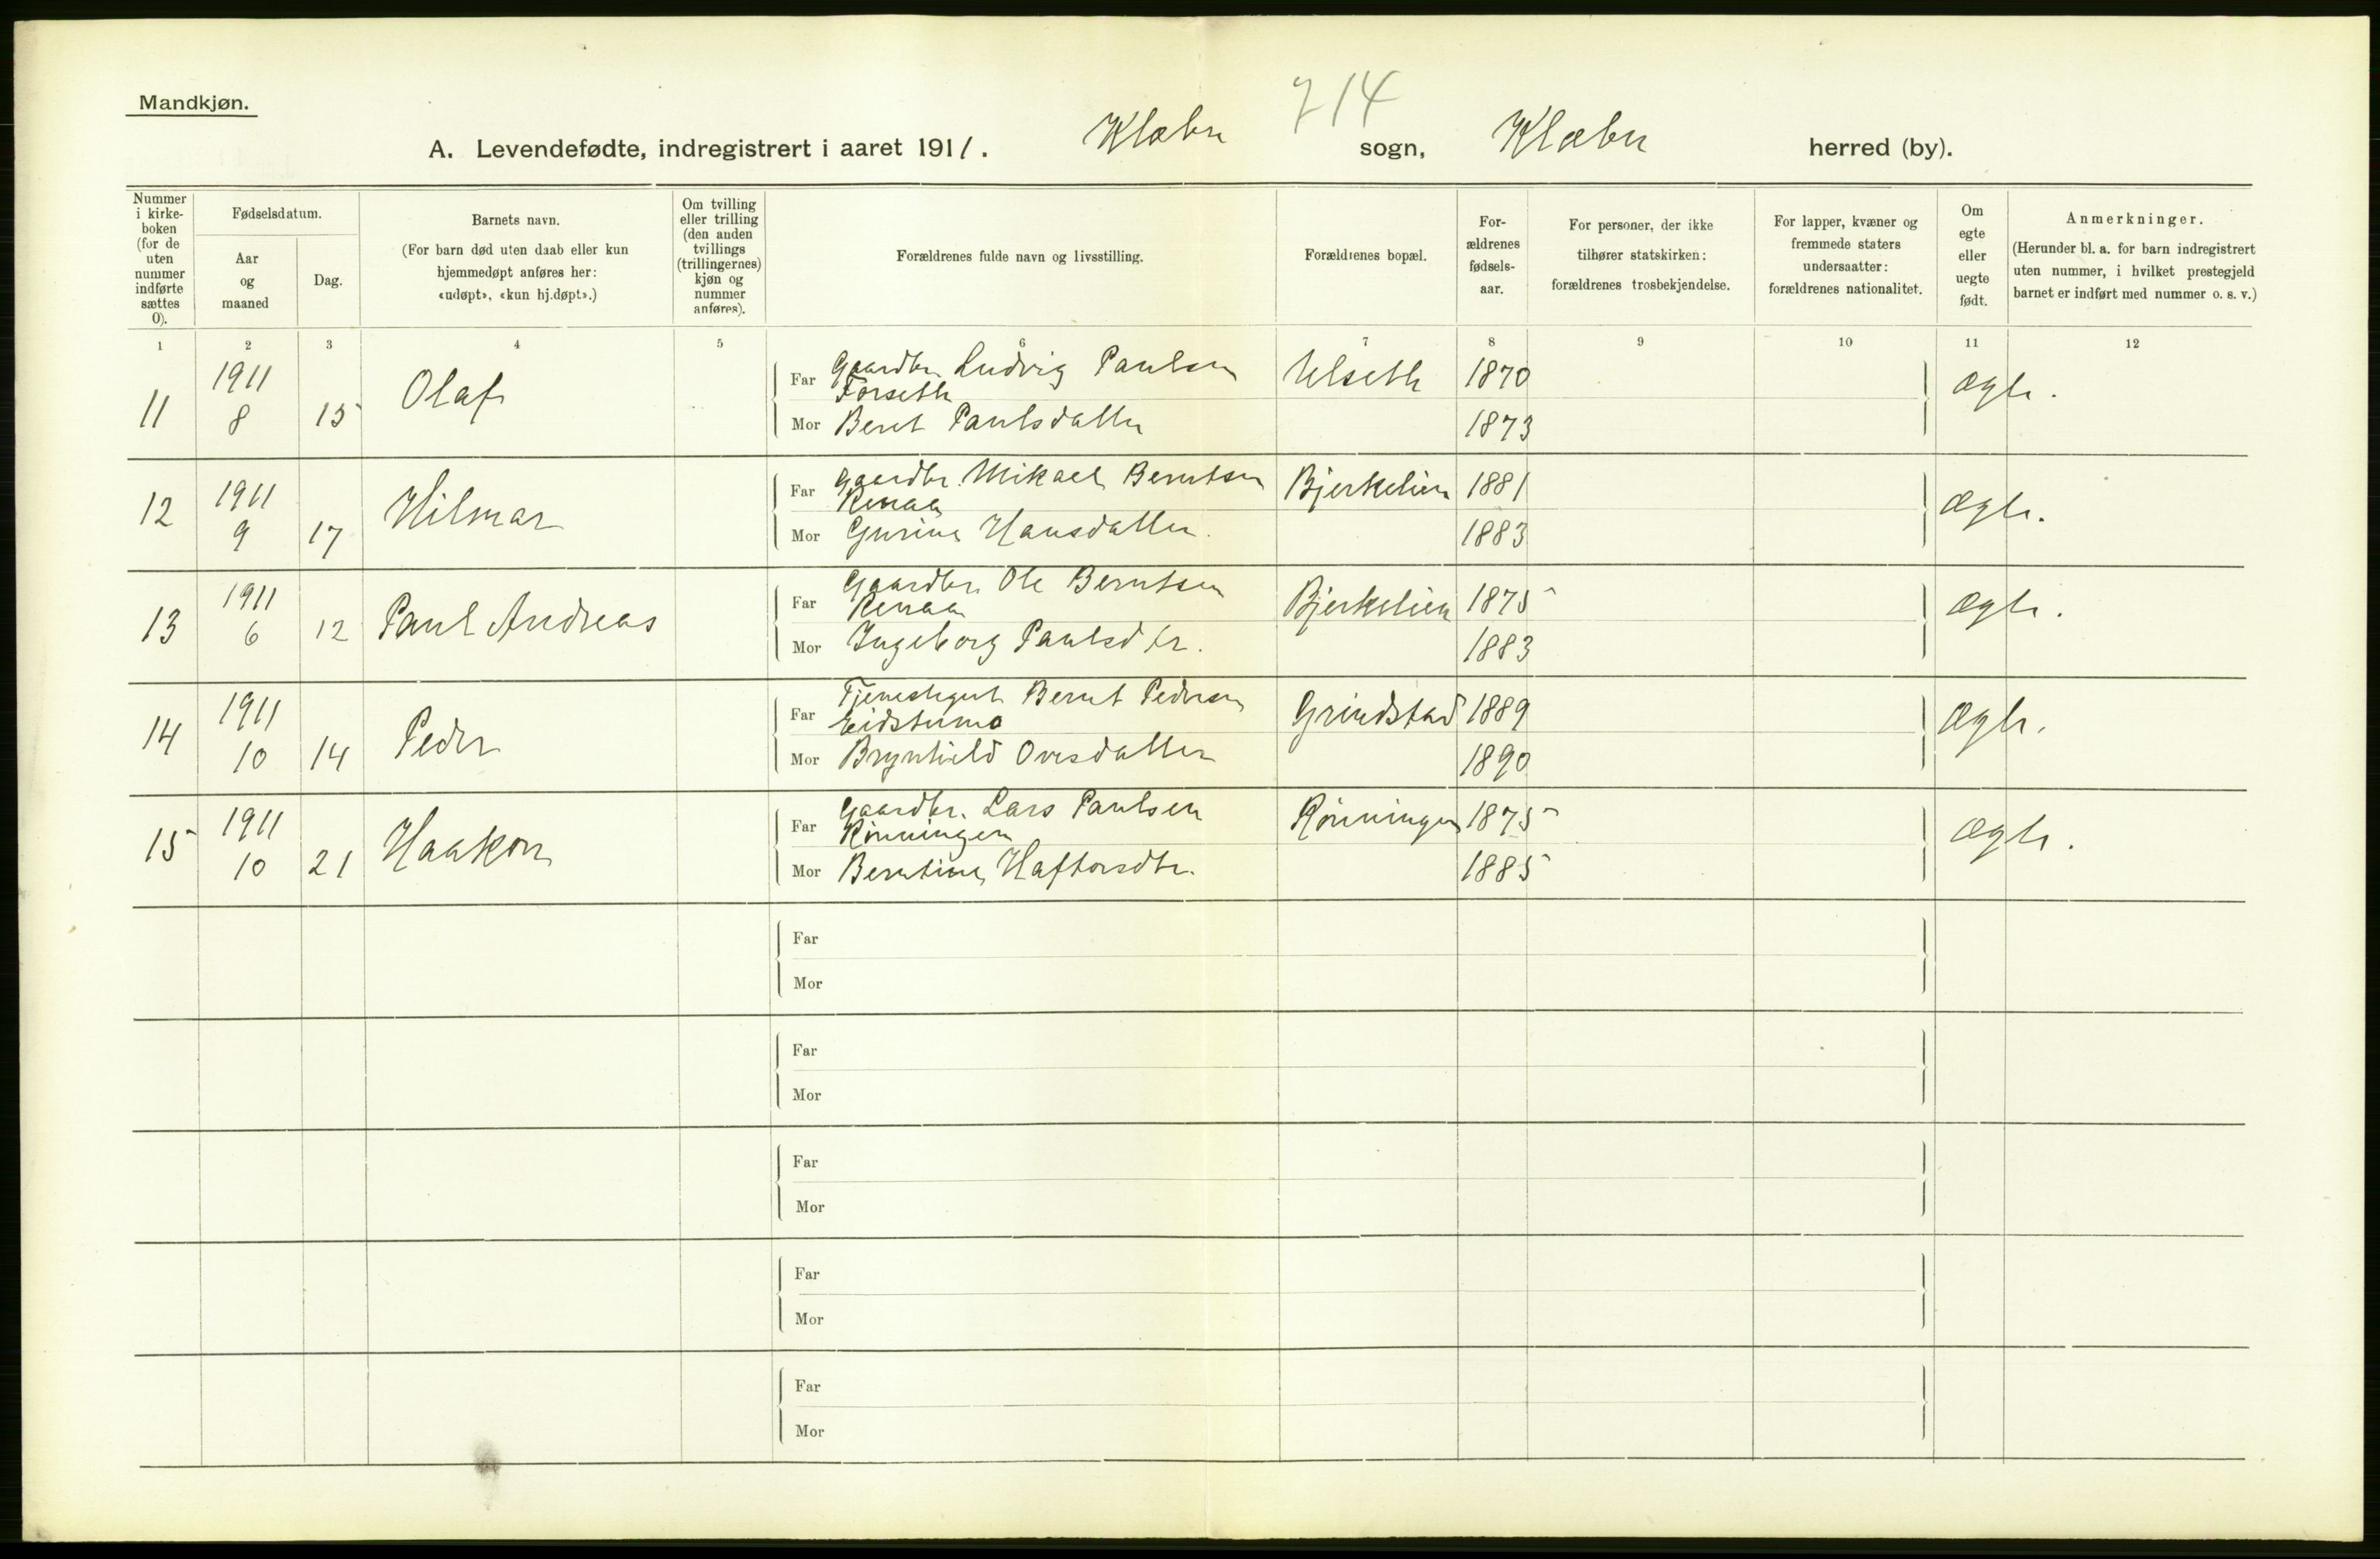 Mandkjøn.
714
A. Levendefødte, indregistrert i aaret 1911. Klæbu sogn, Klæbu herred (by).
Nummer i kirkeboken (for de uten nummer indførte sættes 0).
Fødselsdatum.
Aar og maaned
Dag.
Barnets navn.
(For barn død uten daab eller kun hjemmedøpt anføres her: «udøpt», «kun hj.døpt».)
Om tvilling eller trilling (den anden tvillings (trillingernes) kjøn og nummer anføres).
Forældrenes fulde navn og livsstilling.
Forældrenes bopæl.
Forældrenes fødselsaar.
For personer, der ikke tilhører statskirken: forældrenes trosbekjendelse.
For lapper, kvæner og fremmede staters undersaatter: forældrenes nationalitet.
Om egte eller uegte født.
Anmerkninger.
(Herunder bl. a. for barn indregistrert uten nummer, i hvilket prestegjeld barnet er indført med nummer o. s. v.)
1 2 3 4 5 6 7 8 9 10 11 12
11 1911 8 15 Olaf Far Gaardbr. Ludvig Paulsen Forseth Ulseth 1870 ægte.
Mor Beret Paulsdatter 1873
12 1911 9 17 Hilmar Far Gaardbr. Mikael Berntsen Renaa Bjerkelien 1881 Ægte.
Mor Gurine Hansdatter. 1883
13 1911 6 12 Paul Andreas Far Gaardbr. Ole Berntsen Renaa Bjerkelien 1875 Ægte.
Mor Ingeborg Paulsdtr. 1883
14 1911 10 14 Peder Far Tjenestegut Bernt Pedersen Eidstumo Grindstad 1889 Ægte.
Mor Brynhild Ovesdatter 1890
15 1911 10 21 Haakon Far Gaardbr. Lars Paulsen Rönningen Rönningen 1875 Ægte.
Mor Berntine Haftorsdtr. 1885
Far
Mor
Far
Mor
Far
Mor
Far
Mor
Far
Mor